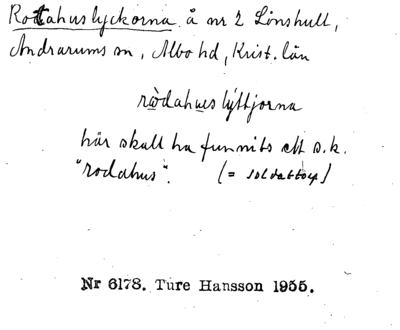 Rotahuslyckorna å nr 2 Lönshult,
Andrarums sn, Albo hd, Krist. län
rödahueslýttjorna
här skall ha funnits ett s.k.
"rodahus". (= soldattorp)
Nr 6178. Ture Hansson 1955.